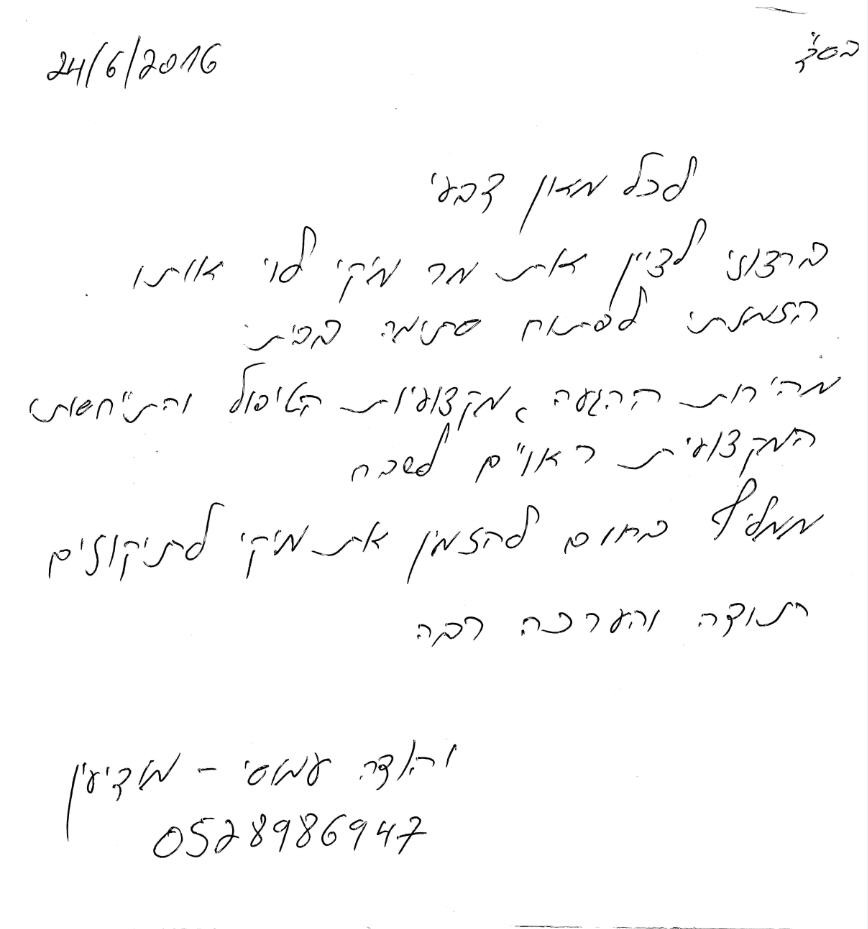 בס"ד
24/6/2016
לכל מאון דבעי
ברצוני לציין את מר מיקי לוי אותו
הזמנתי לפתוח סתימה בבית.
מהירות ההגעה, מקצועיות הטיפול והתייחסותו
המקצועית ראויים לשבח
ממליץ בחום להזמין את מיקי לתיקונים
תודה והערכה רבה
יהודה עמוסי - מודיעין
0528986947